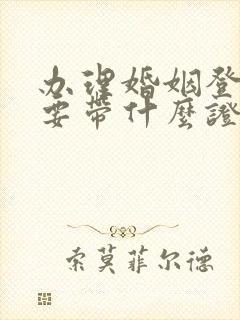 办理婚姻登
要带什麼證
索莫菲尔德